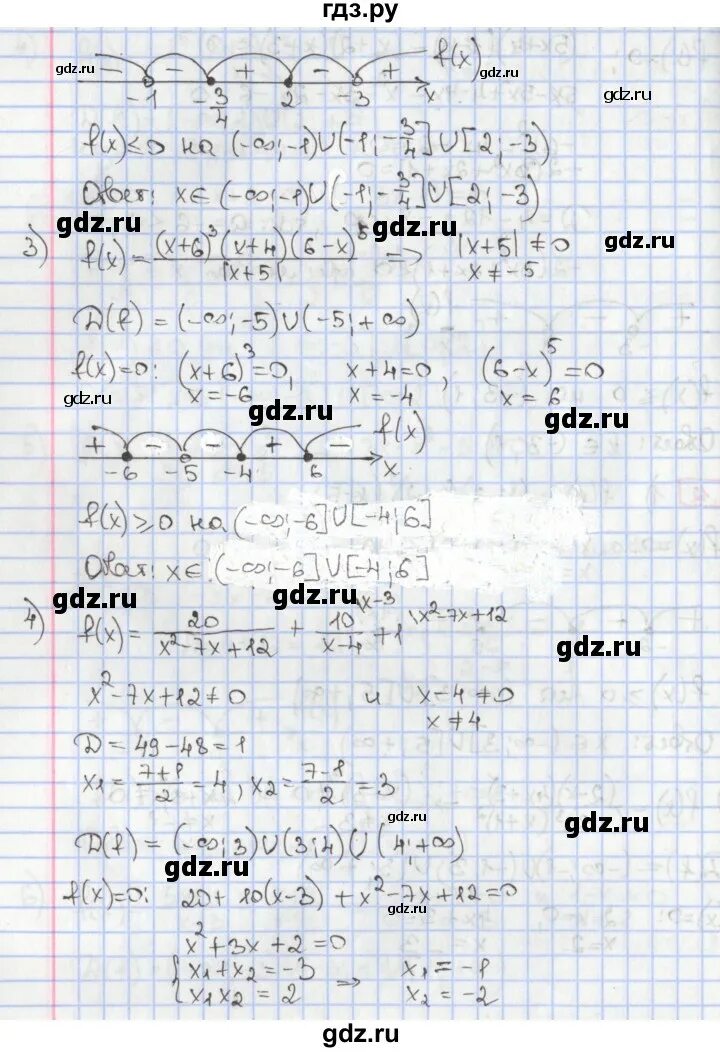 гдз.ру
− − + − + f(x)
gdz.ru gdz.ru
-1 -3/4 2 -3 x
gdz.ru
f(x) ≤ 0 на (-∞; -1)∪(-1; -3/4]∪[2; -3)
Ответ: x∈(-∞; -1)∪(-1; -3/4]∪[2; -3)
gdz.ru gdz.ru gdz.ru
3) f(x) = (x+6)³(x+4)(6-x)⁵ / |x+5| => |x+5| ≠ 0
x ≠ -5
D(f) = (-∞; -5)∪(-5; +∞)
f(x)=0: (x+6)³=0, x+4=0, (6-x)⁵=0
x = -6 x = -4 x = 6
gdz.ru gdz.ru gdz.ru
+ − − + − f(x)
-6 -5 -4 6 x
f(x) ≥ 0 на (-∞; -6]∪[-4; 6]
Ответ: x∈ (-∞; -6]∪[-4; 6]
gdz.ru gdz.ru gdz.ru
4) f(x) = 20/(x²-7x+12) + 10\x-3/(x-4) + 1\x²-7x+12
x²-7x+12≠0 и x-4≠0
x≠4
D = 49-48=1
x₁ = (7+1)/2 = 4, x₂ = (7-1)/2 = 3
gdz.ru gdz.ru
D(f) = (-∞; 3)∪(3; 4)∪(4; +∞)
gdz.ru
f(x)=0: 20+10(x-3)+x²-7x+12=0
gdz.ru
x²+3x+2=0
{x₁+x₂=-3 => x₁=-1
{x₁x₂=2 x₂=-2
gdz.ru